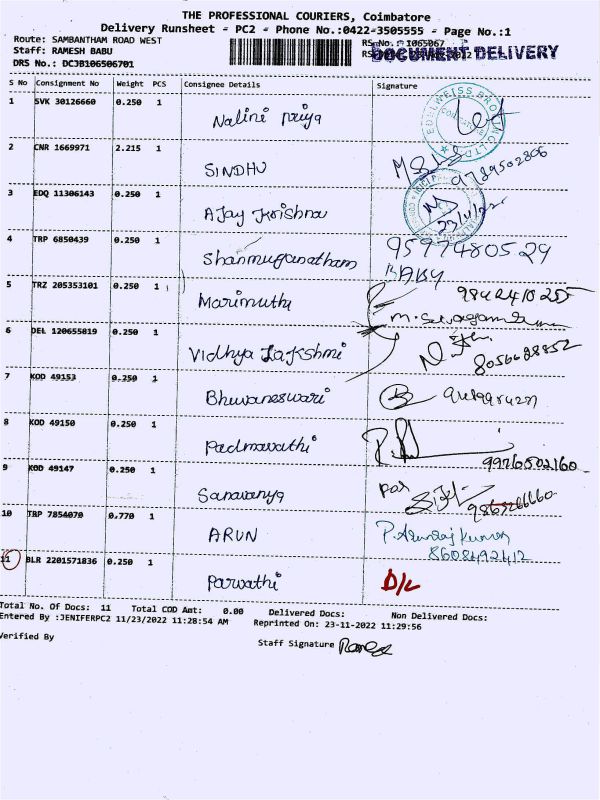 THE PROFESSIONAL COURIERS, Coimbatore
Delivery Runsheet - PC2 - Phone No.:0422-3505555 - Page No.:1
Route: SAMBANTHAM ROAD WEST
RS No. : 1065067
Staff: RAMESH BABU
DOCUMENT DELIVERY
DRS No.: DCJB106506701
S No Consignment No Weight PCS Consignee Details Signature
1 SVK 30126660 0.250 1 Nalini Priya
EDELWEISS BROKING LTD
2 CNR 1669971 2.215 1 SINDHU 9789502806
3 EDQ 11306143 0.250 1 Ajay Krishna 23/11/22
4 TRP 6850439 0.250 1 Shanmuganatham 9597480529
BABY
5 TRZ 205353101 0.250 1 Marimuthu 9842410255
6 DEL 120655819 0.250 1 Vidhya Lakshmi 8056628852
7 KOD 49153 0.250 1 Bhuvaneswari
8 KOD 49150 0.250 1 Padmavathi 9976502160
9 KOD 49147 0.250 1 Saravanya
10 TRP 7854070 0.770 1 ARUN P. Arunraj Kumar
8608492412
11 BLR 2201571836 0.250 1 Parvathi D/L
Total No. Of Docs: 11 Total COD Amt: 0.00 Delivered Docs: Non Delivered Docs:
Entered By :JENIFERPC2 11/23/2022 11:28:54 AM Reprinted On: 23-11-2022 11:29:56
Verified By
Staff Signature